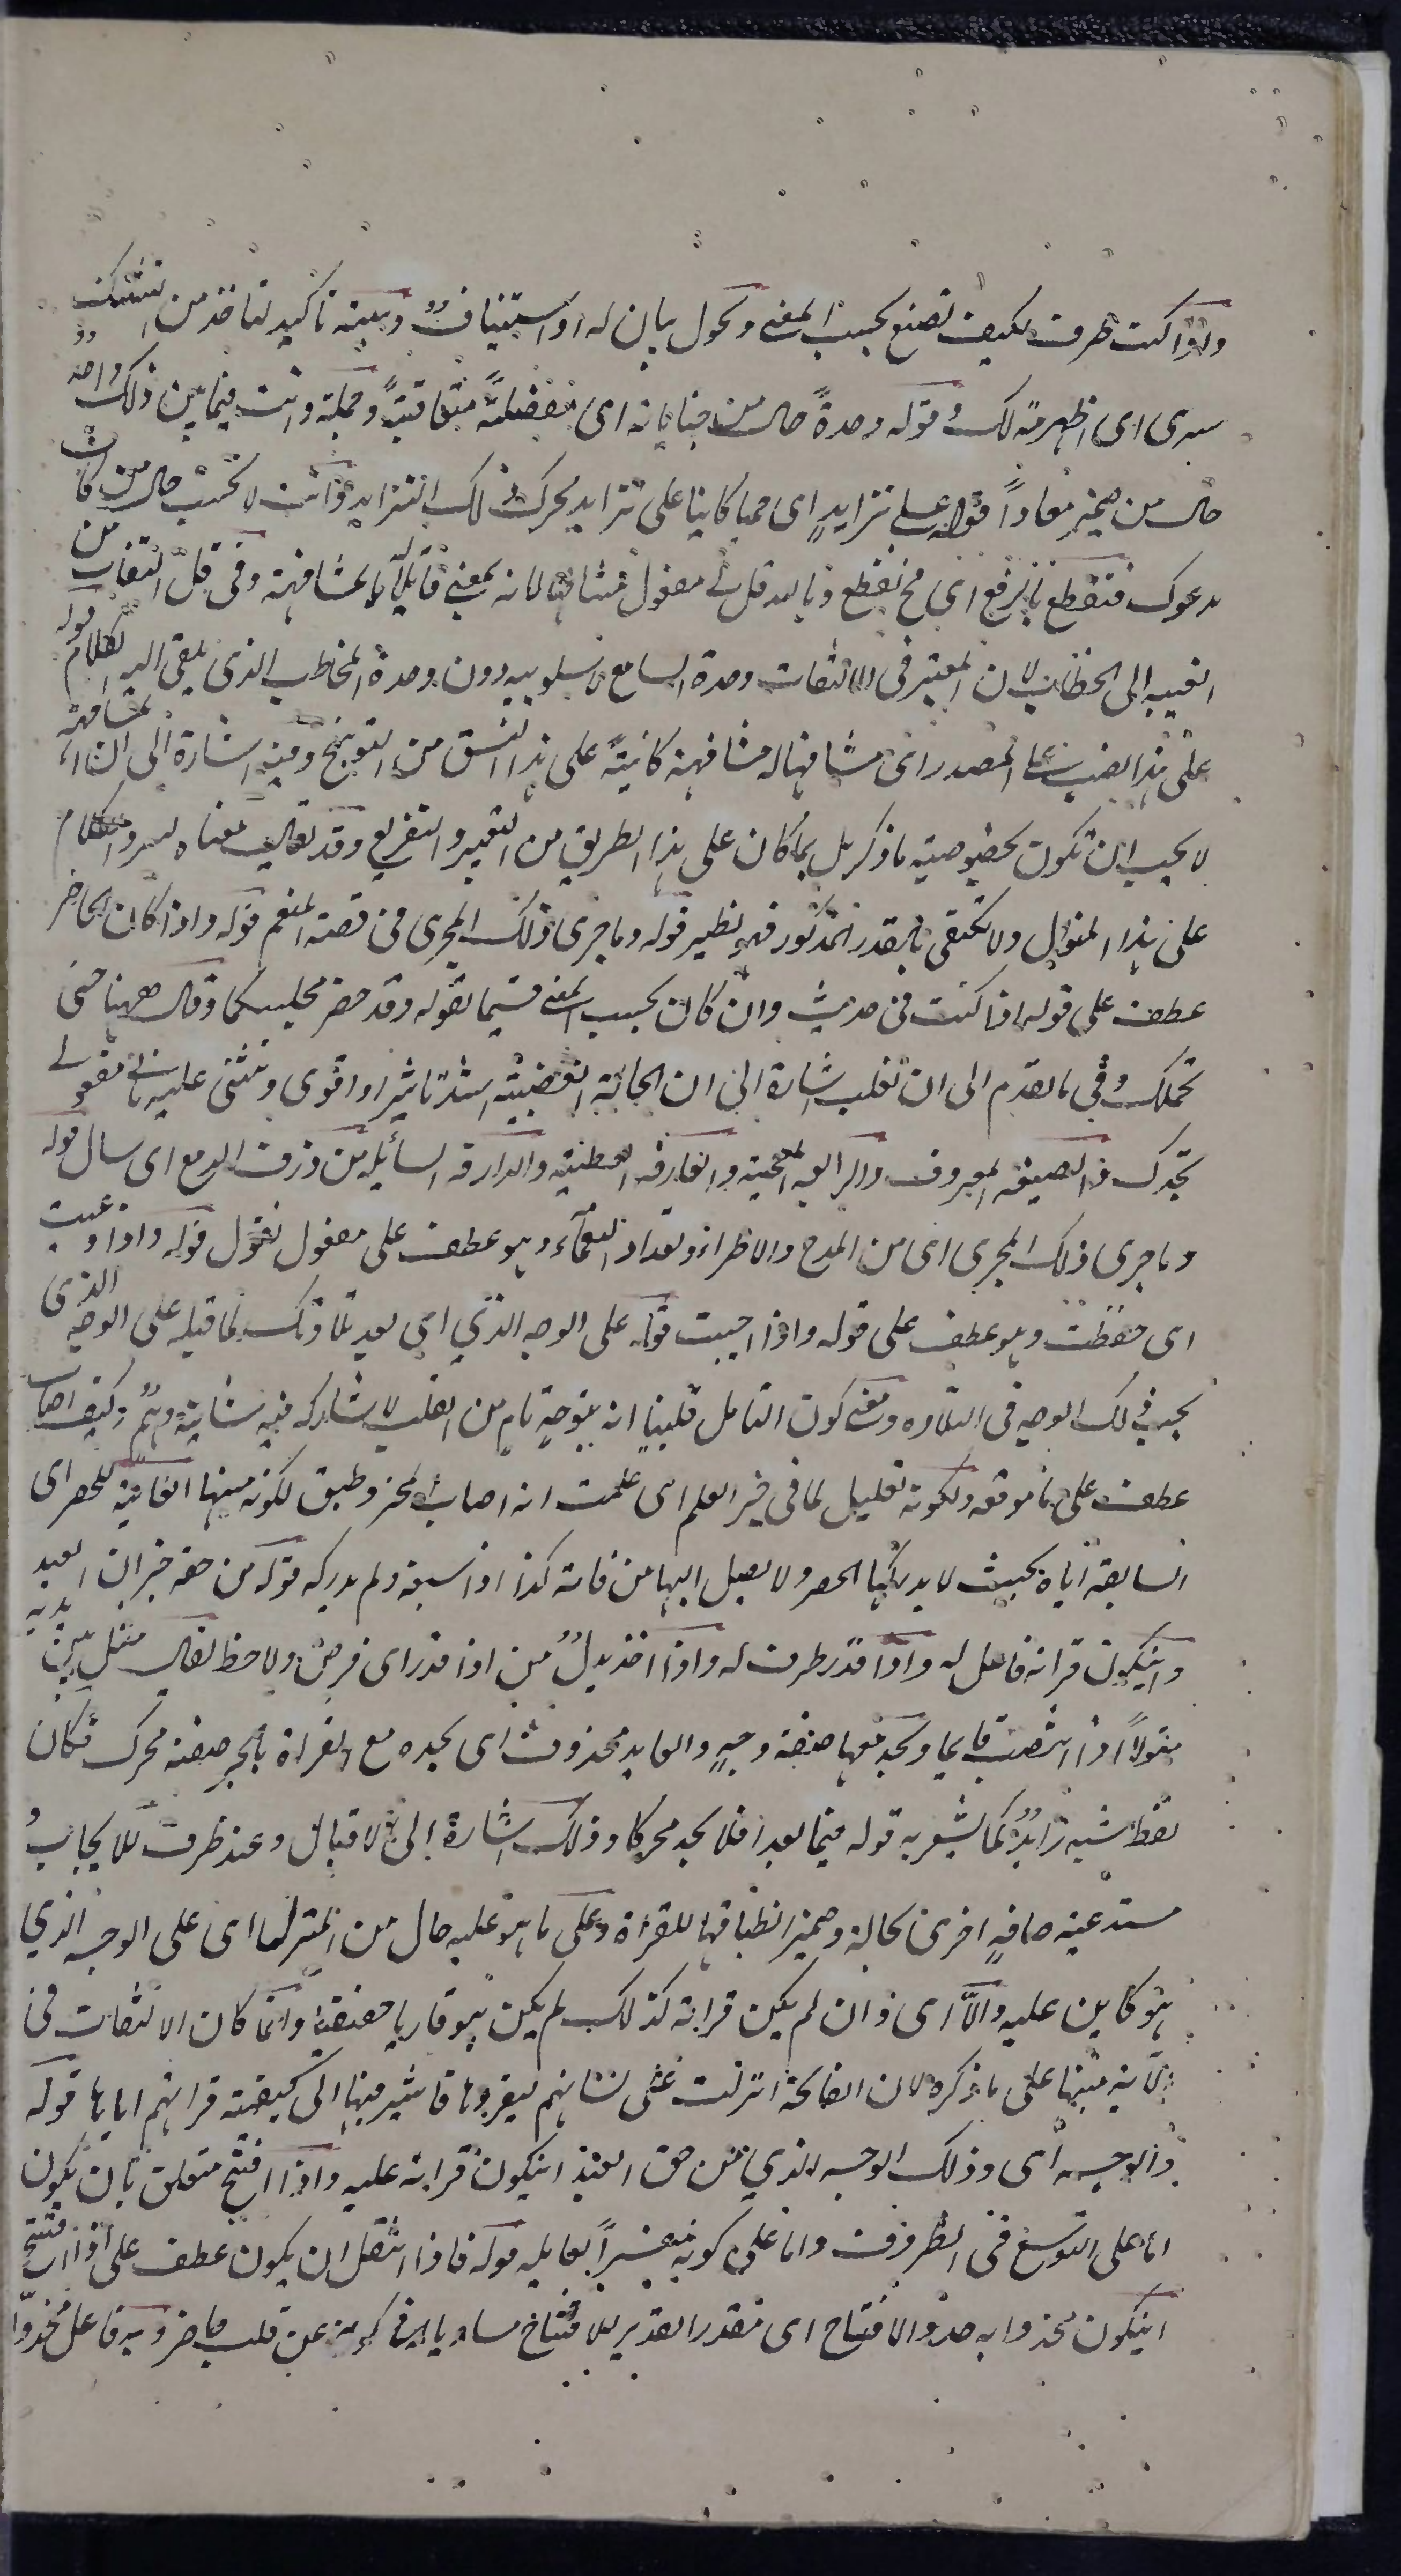 واذا كنت ظرف لكيف تصنع بحسب المعنى وتحول بيان له او استيناف وبينه تاكيد لتاخذ من
سرى اى اظهر منه لك وقوله وحدة حال من جناياته اى مفصلة متعاقبة وجملة وانت فيما بين ذلك واجد
حال من ضمير معادا قوله على تزايد اى كاينا على تزايد محرك ذلك التزايد وانت لا تحسب حال من كاف
يدعوك فتقطع بالرفع اى فح تقطع قل مفعول مشافها لانه بمعنى قايلا بالمشافهة وفى قل التفات من
الغيبه الى الخطاب لان المعتبر فى الالتفات وحدة السامع دون وحدة المخاطب الذى يلقى اليه الكلام قوله
على هذا نصب على المصدر اى مشافها له مشافهة كاينة على هذا النسق من التوبيخ وفيه اشارة الى ان المشافهة
لا يجب ان تكون بخصوصيته ما ذكر بل بما كان على هذا الطريق من التعيير والتقريع وقد يقال معناه الكلام
على هذا المنوال ولا تكتفى بالقدر المذكور فهو نظير قوله وما جرى ذلك المجرى فى قصة المنعم قوله واذا كان الحاضر
عطف على قوله اذا كنت فى حديث وان كان بحسب المعنى قسيما لقوله وقد حضر مجلسكما وقال ههنا حتى
تحملك وفى ما تقدم الى ان تغلب اشارة الى ان الحالة الغضبية اشد تاثيرا او اقوى وتثنى عليه ثانى مفعولى
تجدك والصنيعه المعروف والعارفه العطية والذارفه السائله من ذرف الدمع اى سال قوله
وما جرى ذلك المجرى اى من المدح والاطراء وتعداد النعماء وهو عطف على مفعول تقول قوله واذا وعيت
اى حفظت وهو عطف على قوله واذا احببت قوله على الوجه الذى اى بعد تلاوتك لما قبله على الوجه الذى
يجب ذلك الوجه فى التلاوه ومعنى كون التامل قلبيا انه بتوجه تام من القلب لا يشاركه فيه شايبة وهم وكيف اصاب
عطف على ما موقعه ولكونه تعليل لما فى خبر العلم اى علمت انه اصاب المحز وطبق لكونه منبها الفايتة للحصر اى
السابقة اياه بحيث لا يدركها الحصر ولا يصل اليها من فاته كذا اذا سبقه ولم يدركه قوله من حقه خبر ان العبد
وان يكون قراته فاعل له واذا قدر ظرف له واذا اخذ بدل من اذا قدر اى فرض ولاحظ يقال مثل بين يديه
مثولا اذا انتصب قايما ويجد معها صفة وجه والعايد محذوف اى يجده مع القراة بالجر صفة محرك فكان
لفظ شبه زايد كما يشعر به قوله فيما بعد افلا يجد محركا وذلك اشارة الى الاقبال وعند ظرف للايجاب و
مستدعية صافه اخرى لحالة وضمير انطباقها للقراة وعلى ما هو عليه حال من المنزل اى على الوجه الذى
هو كاين عليه والا اى وان لم يكن قراته كذلك لم يكن هو قاريا حقيقة وانما كان الالتفات فى
الآية منبها على ما ذكره لان الفاتحة انزلت على لسانهم ليقروها فاشير منها الى كيفية قراتهم اياها قوله
والوجه اى وذلك الوجه الذى من حق العبد ان يكون قراته عليه واذا افتتح متعلق بان يكون
اما على التوسع فى الظروف واما على كونه مفسرا لعامله قوله فاذا انتقل ان يكون عطف على اذا افتتح
ان يكون محذوا به حذو الافتتاح اى مقدرا لتقدير للافتتاح مساويا له فى كونه عن قلب حاضر وهو فاعل محذوا